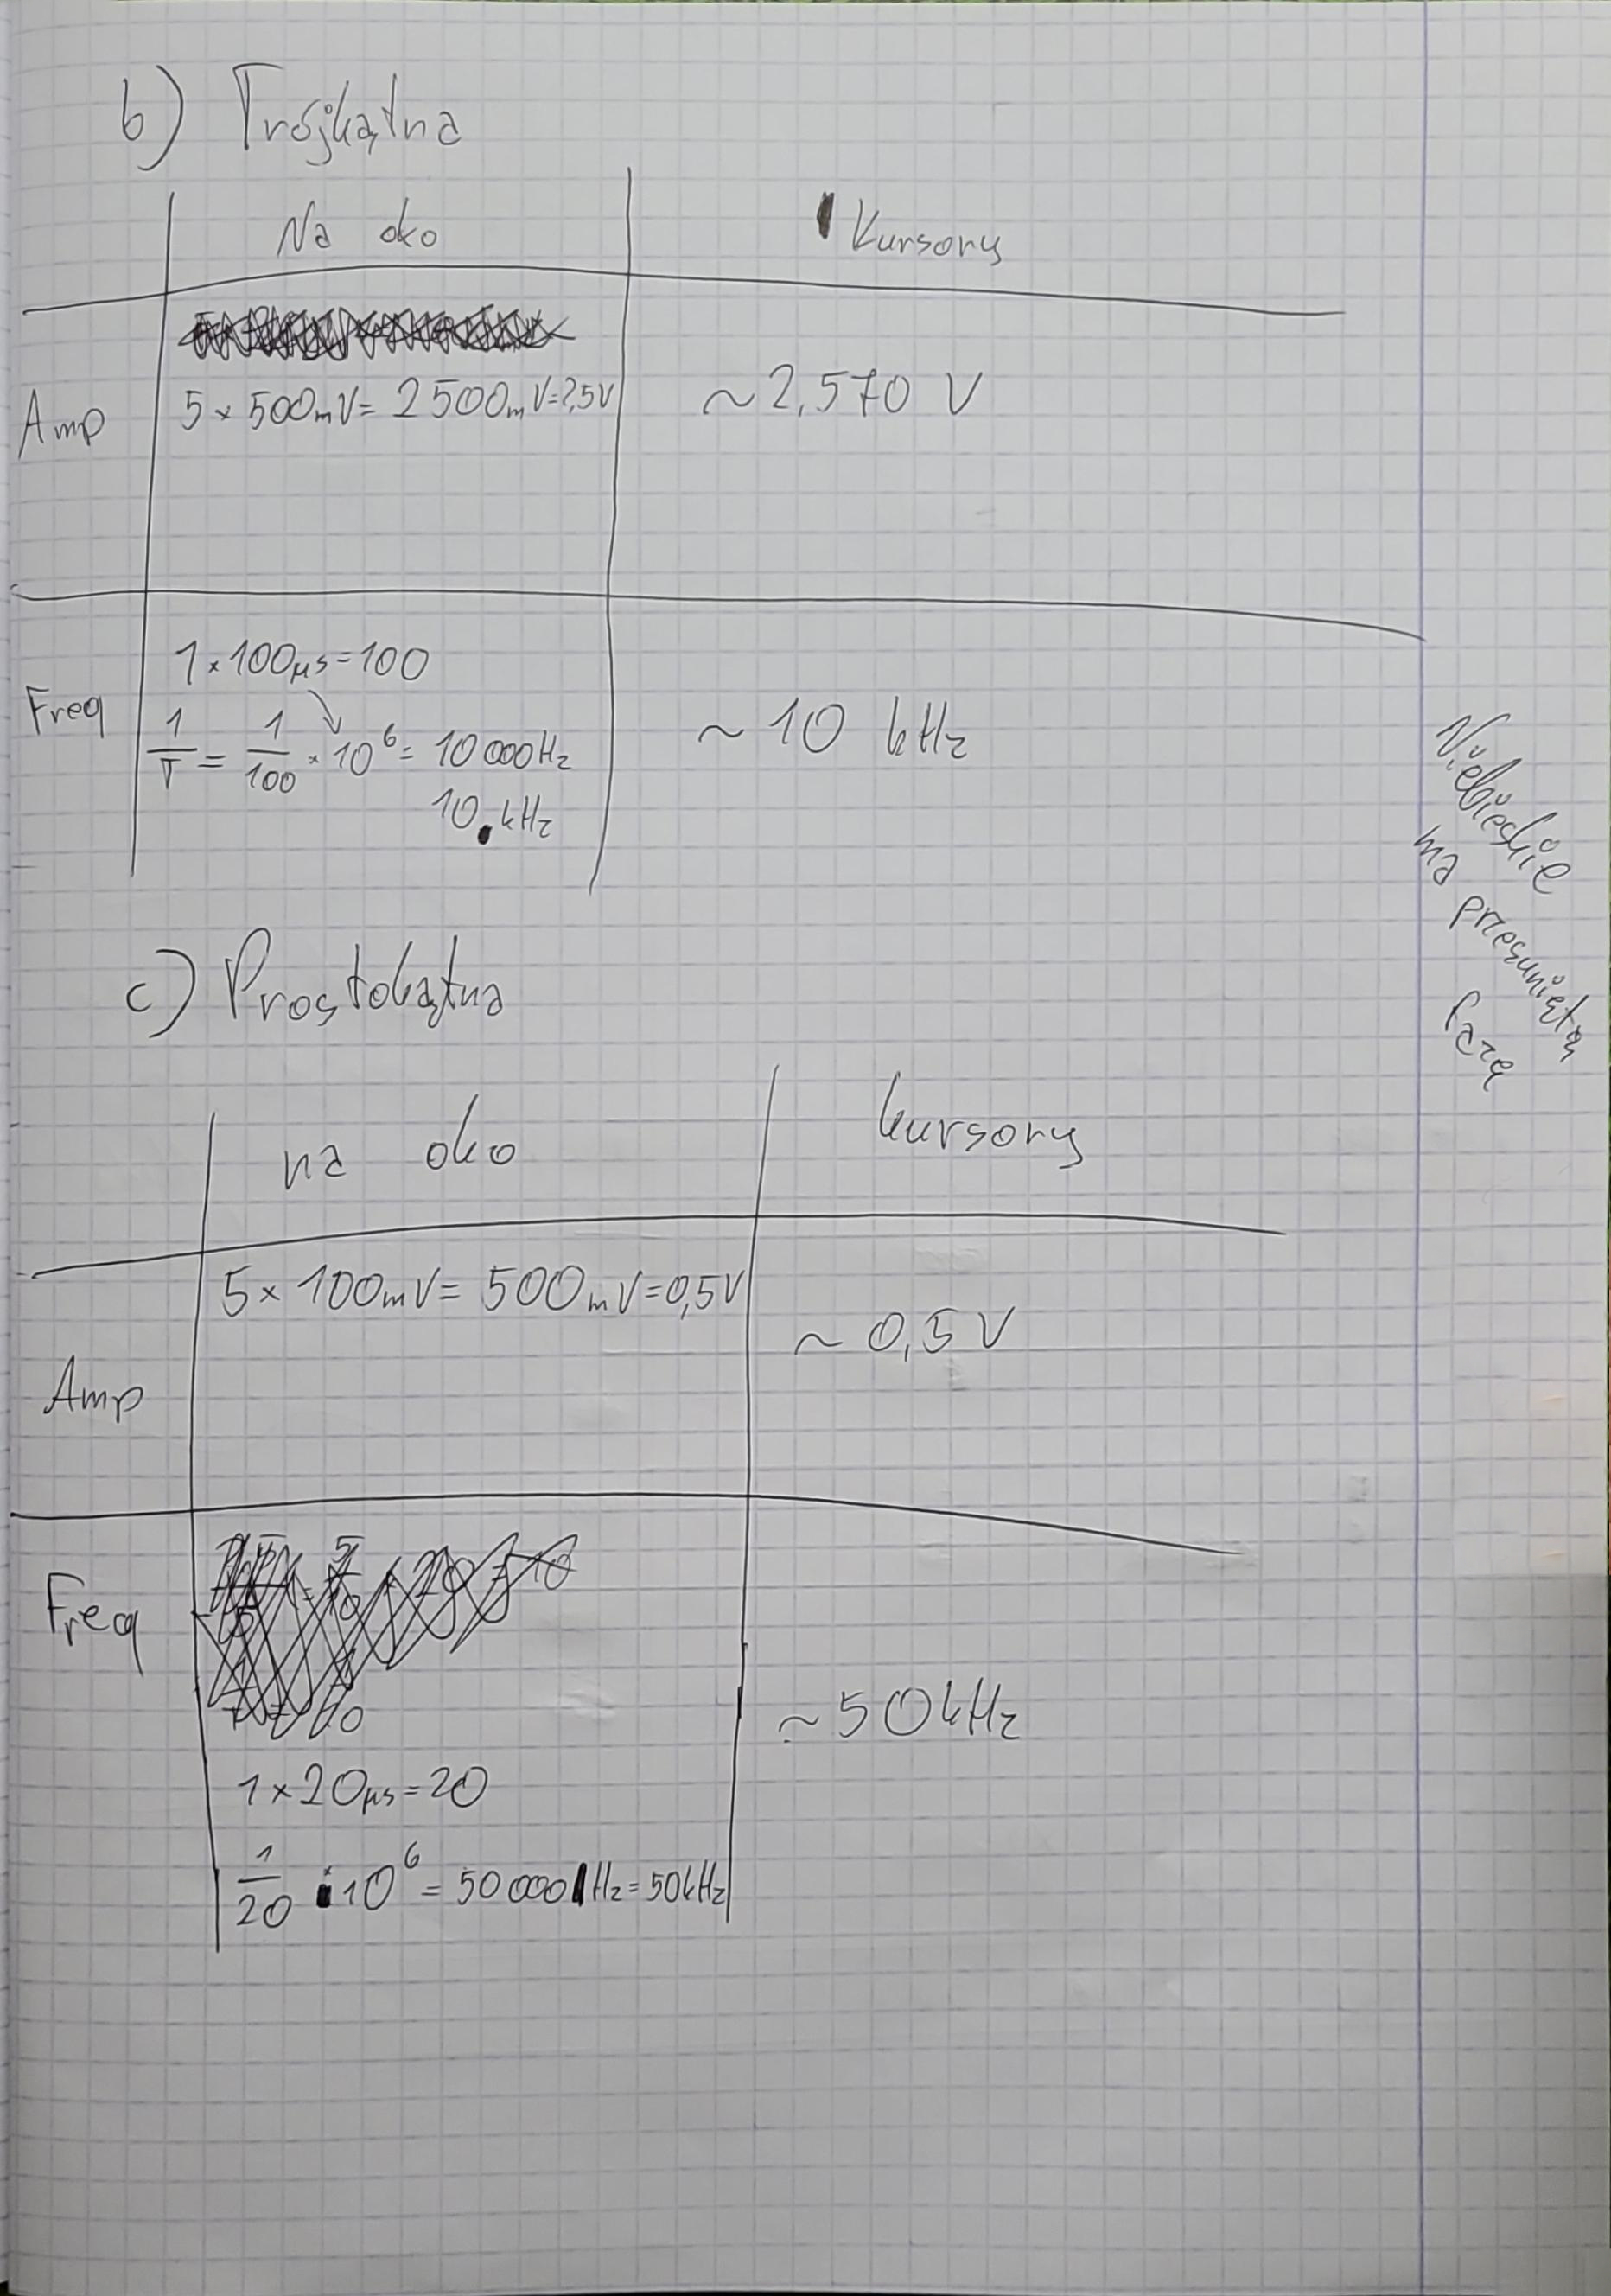 b) Trójkątna
Na oko
Kursory
Amp
5 × 500mV = 2500mV = 2,5V
~2,570 V
Freq
1 × 100μs = 100
1/T = 1/100 × 10⁶ = 10 000Hz
10 kHz
~10 kHz
Niebieskie
ma przesuniętą
fazę
c) Prostokątna
na oko
kursory
Amp
5 × 100mV = 500mV = 0,5V
~ 0,5 V
Freq
1 × 20μs = 20
1/20 · 10⁶ = 50 000 Hz = 50kHz
~50kHz